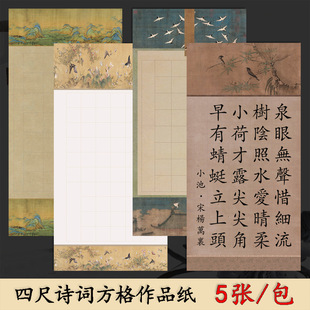 泉眼無聲惜細流
樹陰照水愛晴柔
小荷才露尖尖角
早有蜻蜓立上頭
小池·宋楊萬裏
四尺诗词方格作品纸
5张/包